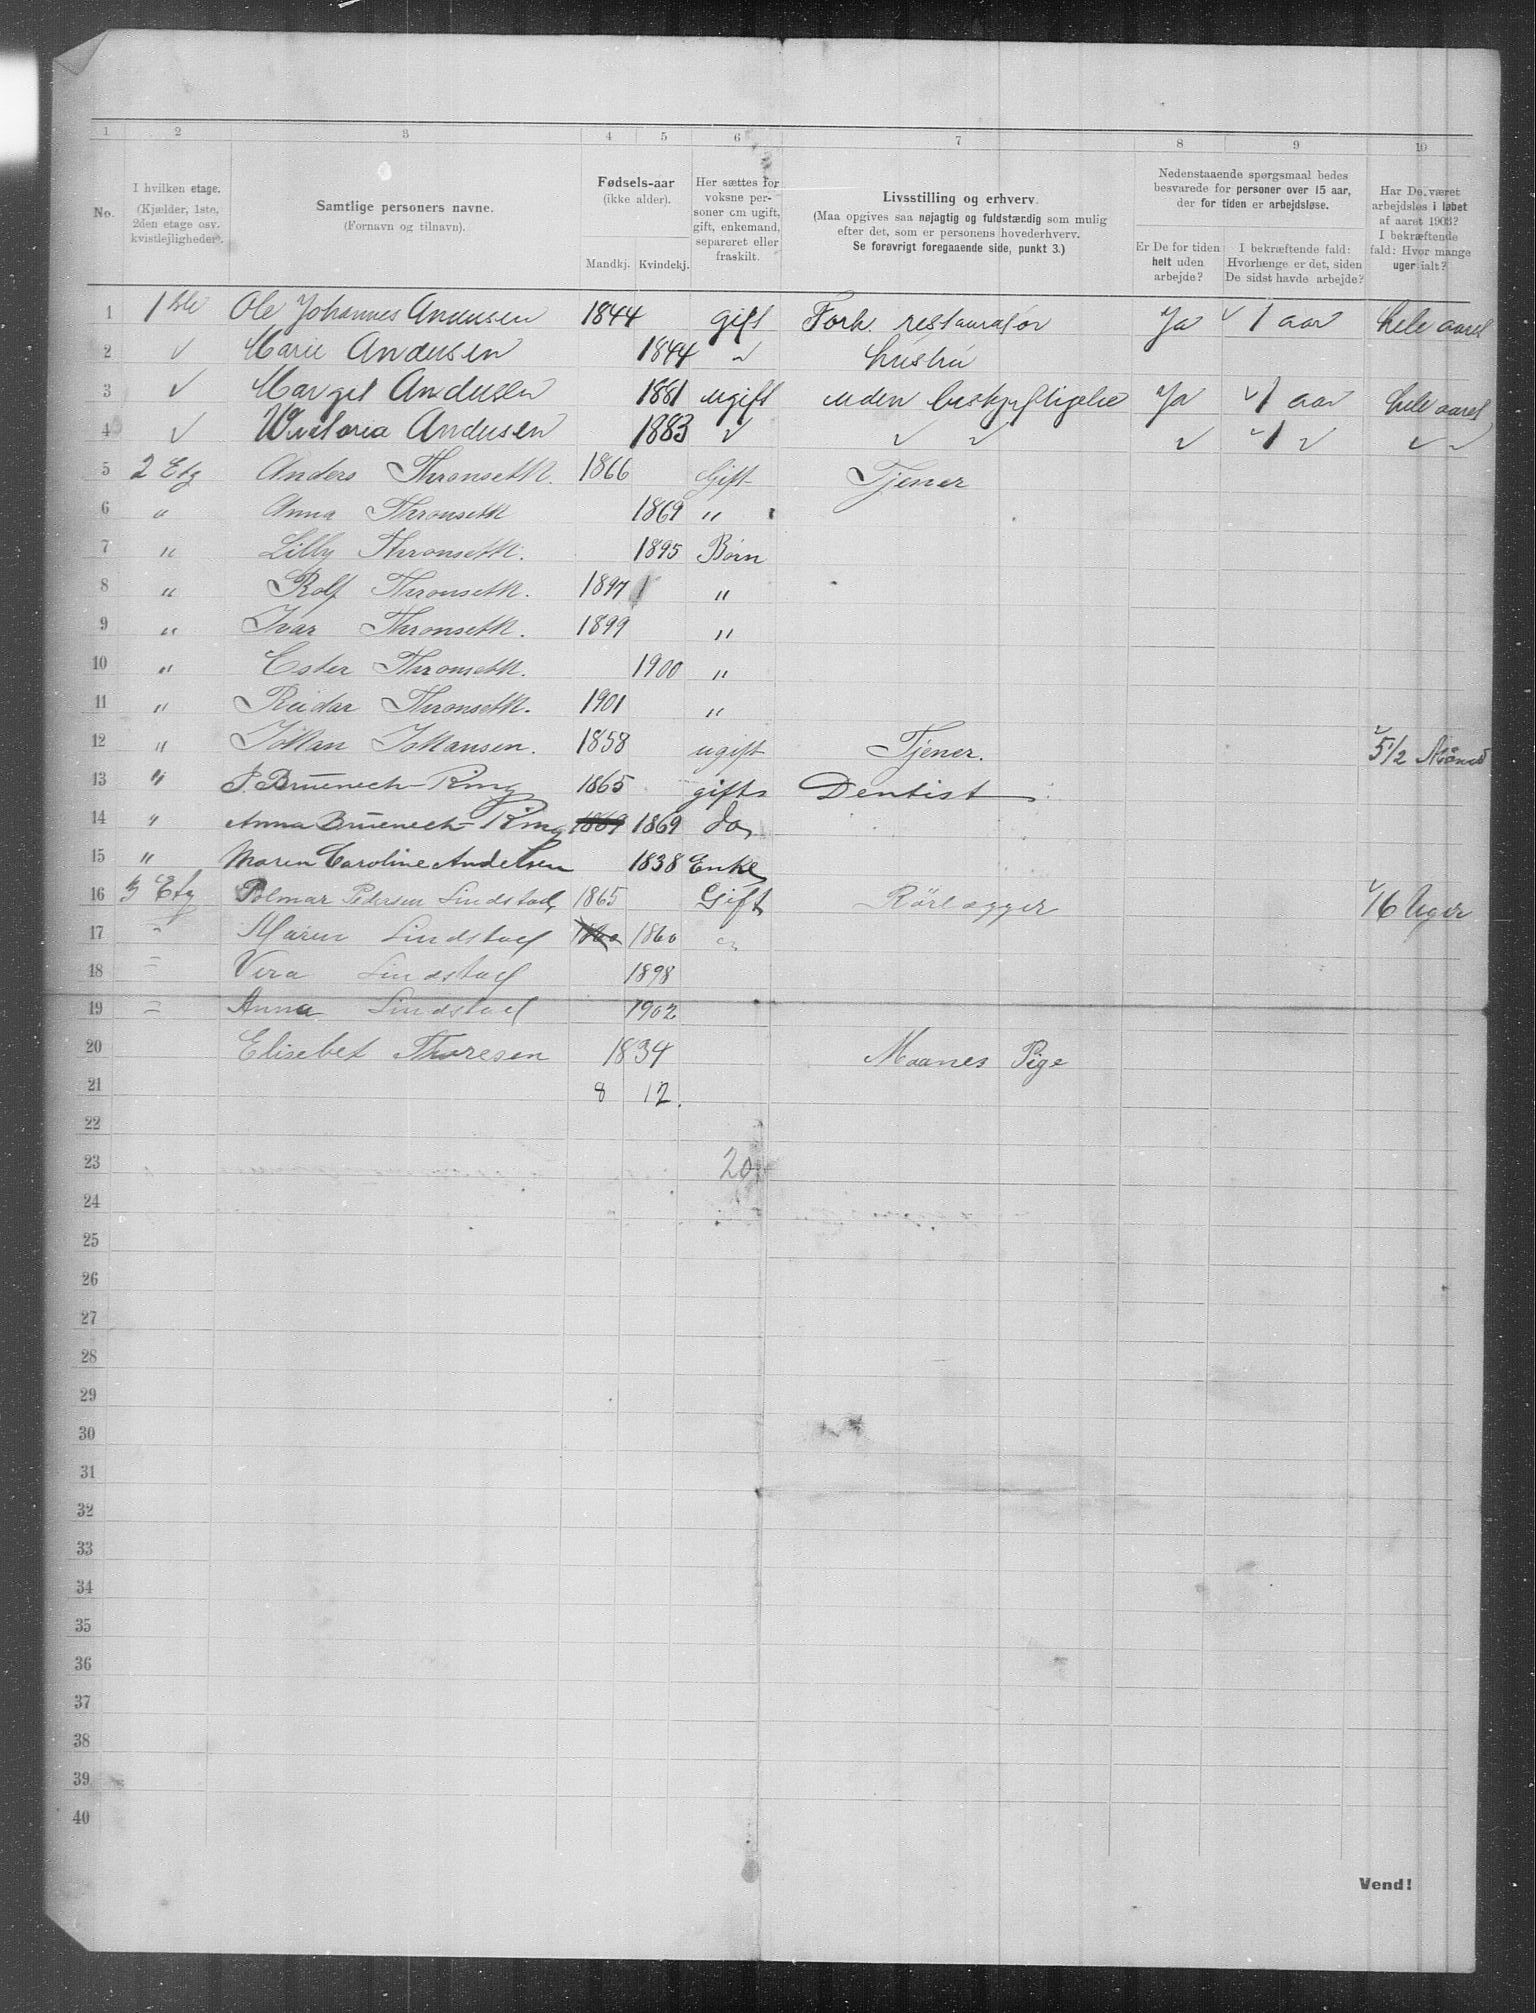 1 2 3 4 5 6 7 8 9 10
No.
I hvilken etage.
(Kjælder, 1ste,
2den etage osv.
kvistlejligheder).
Samtlige personers navne.
(Fornavn og tilnavn).
Fødsels-aar
(ikke alder).
Mandkj. Kvindekj.
Her sættes for
voksne per-
soner om ugift,
gift, enkemand,
separeret eller
fraskilt.
Livsstilling og erhverv.
(Maa opgives saa nøjagtig og fuldstændig som mulig
efter det, som er personens hovederhverv.
Se forøvrigt foregaaende side, punkt 3.)
Nedenstaaende spørgsmaal bedes
besvarede for personer over 15 aar,
der for tiden er arbejdsløse.
Er De for tiden
helt uden
arbejde?
I bekræftende fald:
Hvorlænge er det, siden
De sidst havde arbejde?
Har De været
arbejdsløs i løbet
af aaret 1903?
I bekræftende
fald: Hvor mange
uger ialt?
1 1ste Ole Johannes Andersen 1844 gift Forh. restauratør Ja 1 aar hele aaret
2 Marie Andersen 1844 hustru
3 Margit Andersen 1881 ugift uden beskjeftigelse Ja 1 aar hele aaret
4 Andersen 1883 1
5 2 Etg Anders Thronseth. 1866 Gift Tjener
6 " Anna Thronseth 1869 "
7 " Lilly Thronseth. 1895 Børn
8 " Rolf Thronseth. 1897 "
9 " Ivar Thronseth. 1899 "
10 " Ester Thronseth. 1900 "
11 " Reidar Thronseth. 1901 "
12 " Johan Johansen. 1858 ugift Tjener. 5 1/2 Maaned
13 " J. Bruenech-Ring 1865 gift Dentist
14 " Anna Bruenech-Ring 1869 1869 do
15 " Maren Caroline Andersen 1838 Enke
16 3 Etg Polmar Pedersen Lindstad 1865 Gift Rørlægger 16 Uger
17 Maren Lindstad 1860 1860
18 Vera Lindstad 1898
19 Anna Lindstad 1902
20 Elisebet Thoresen 1834 Maanes Pige
21 8 12.
22
23 20
24
25
26
27
28
29
30
31
32
33
34
35
36
37
38
39
40
Vend!